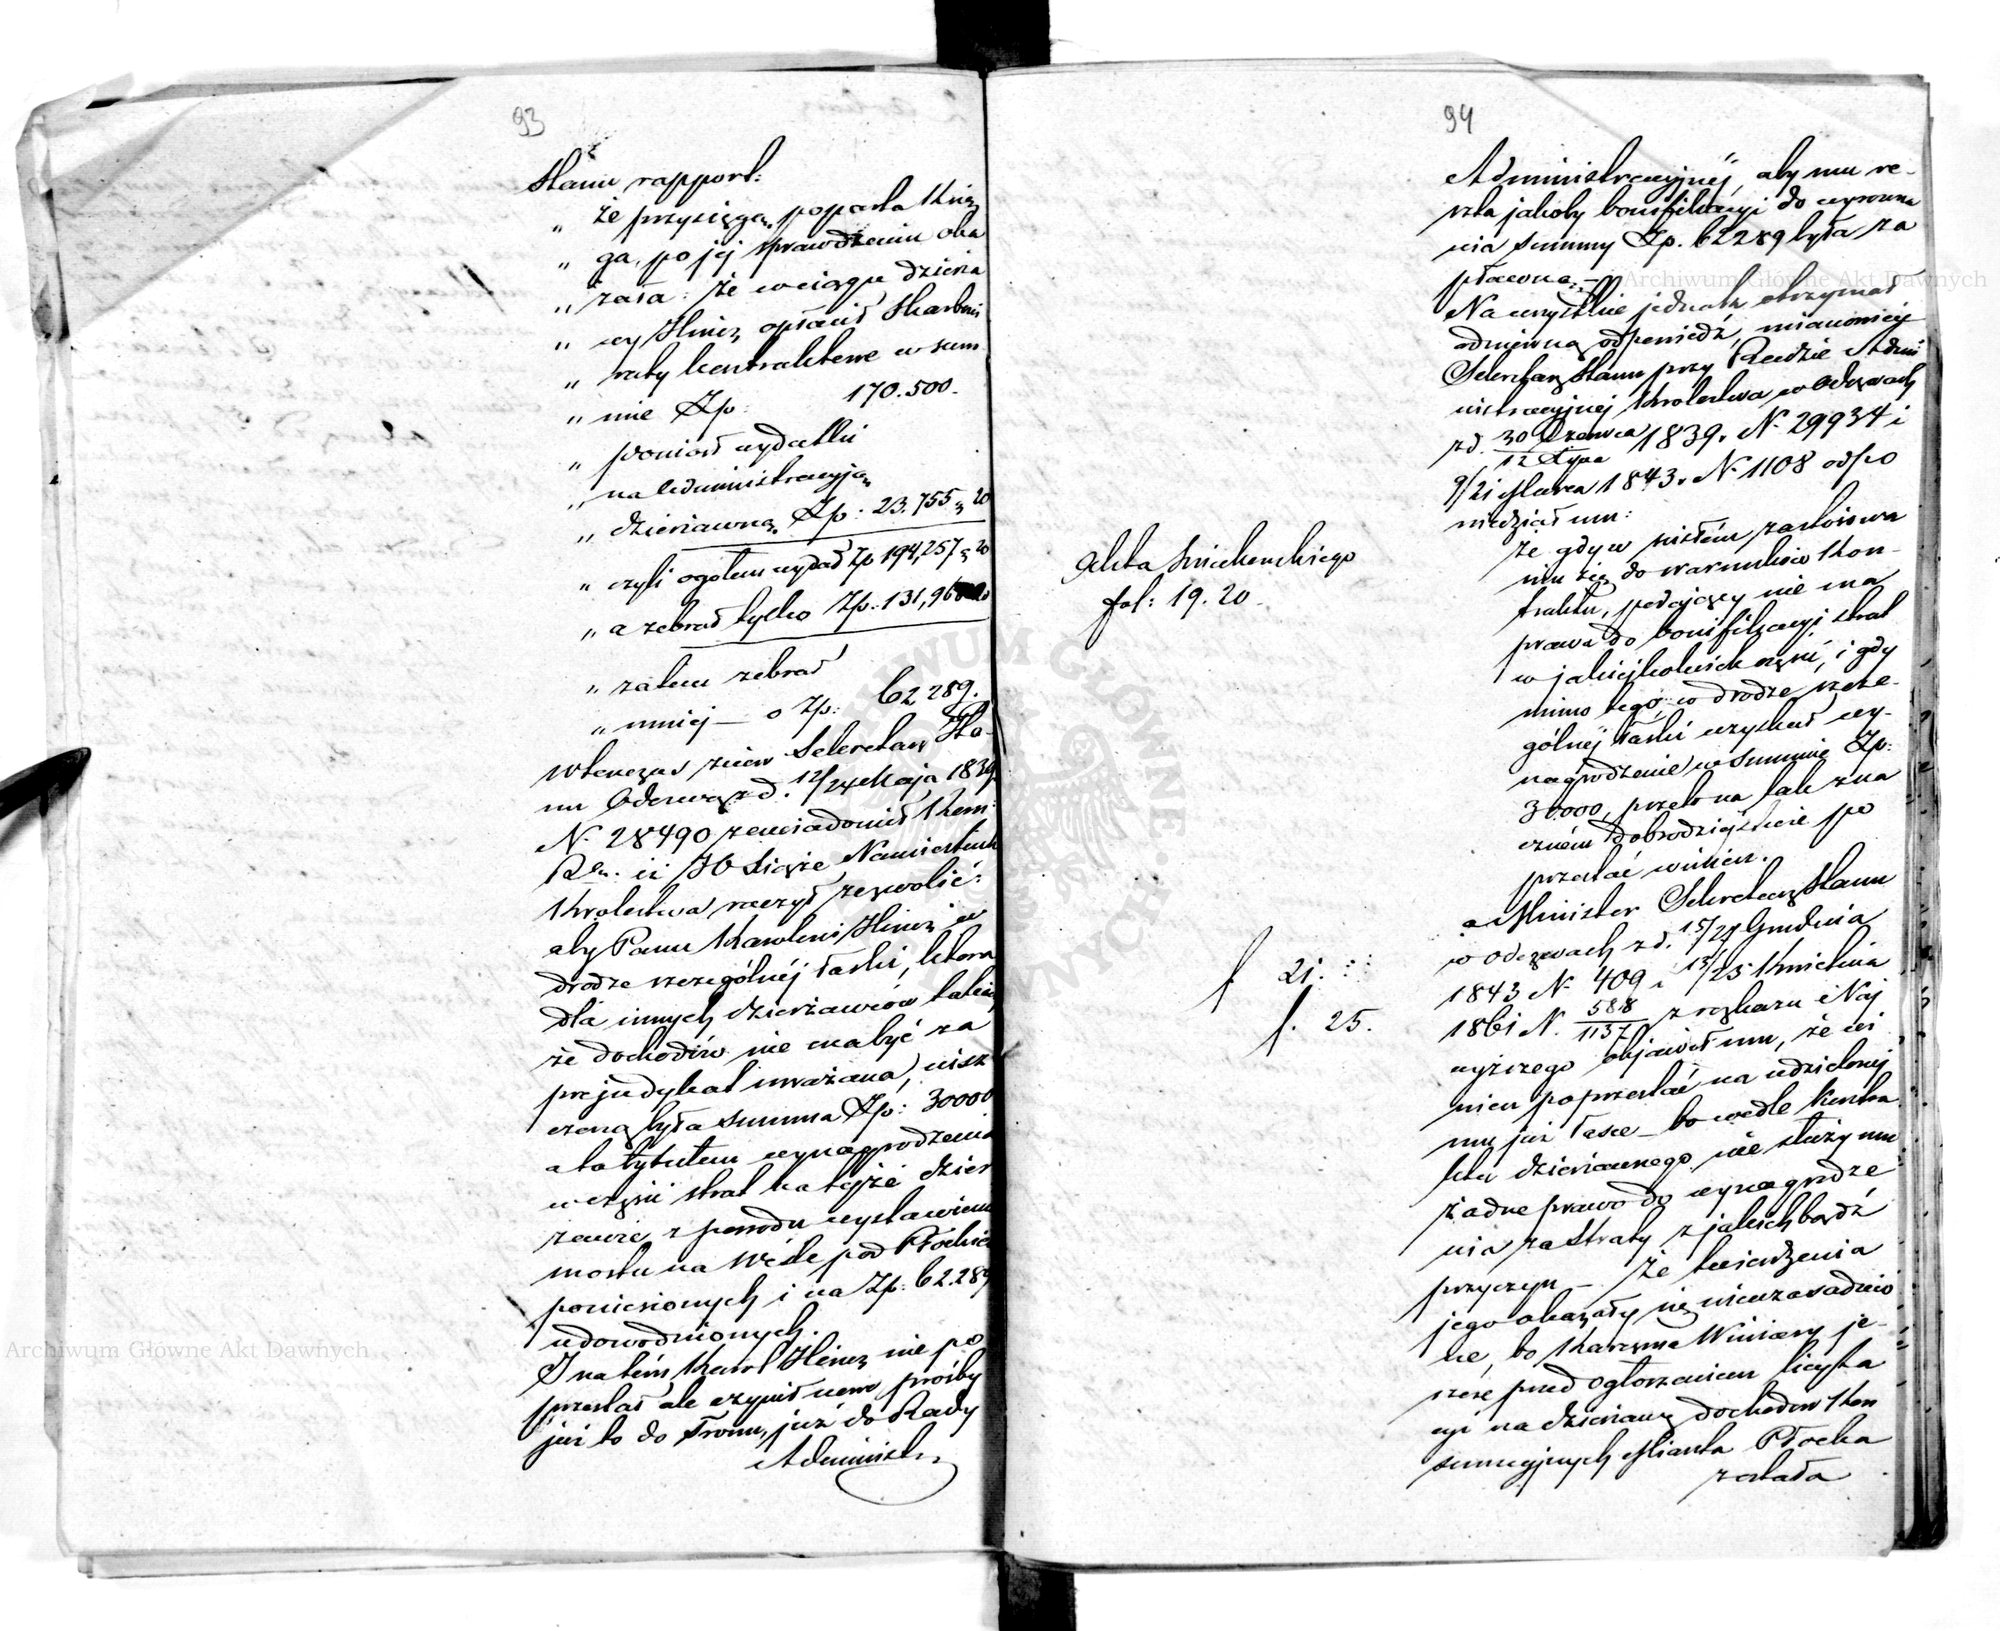 93
Stanu rapport:
„ że przysięgą poparta Xię
„ ga, po jej sprawdzeniu oka
„ zała: że w ciągu dzierża
„ wy Hincz opłacił Skarbowi
„ raty kontraktowe w sum
„ mie Zp: 170.500.
„ poniósł wydatki
„ na Administracyją
„ dzierżawną Zp: 23.755 „ 20
„ czyli ogółem wydał Zp 194,257 „ 20
„ a zebrał tylko Zp: 131,968 20
„ zatem zebrał
„ mniej — o Zp: 62 289.
Wtenczas znów Sekretarz Sta-
nu Odezwą z d. 12/24 Maja 1839
N. 28490 zawiadomił Kom:
iż JO Xiąże Namiestnik
Królestwa raczył zezwolić:
aby Panu Karolowi Hincz w
drodze szczególnéj łaski, która
dla innych dzierżawców także
że dochodów nie ma być za
prejudykat uważana, uisz
czoną była summa Zp: 30000
a to tytułem wynagrodzenia
w części strat na tejże dzier
żawie z powodu wystawienia
mostu na Wiśle pod Płockiem
poniesionych i na Zp: 62.289
udowodnionych.
I na tém Karol Hincz nie po
przestał ale czynił nowe prośby
już to do Tronu, już do Rady
Administr
94
Administracyjnéj, aby mu re-
szta jakoby bonifikacyi do wyrówna
nia summy Zp. 62289 była za
płaconą. —
Na wszystkie jednak otrzymał
odmówną odpowiedź, mianowicie
Sekretarz Stanu przy Radzie Admi
nistracyjnej Królestwa w Odezwach
z d. 30 Czerwca / 12 Lipca 1839. N. 29934 i
9/21 Marca 1843. N. 1108 odpo
wiedział mu:
że gdy w ścisłém zastosowa
niu się do warunków Kon-
traktu, podający nie ma
prawa do bonifikacyi strat
w jakiejkolwiek części, i gdy
mimo tego w drodze szcze-
gólnéj łaski uzyskał wy-
nagrodzenie w summie Zp:
30000, przeto na tak zna
czném dobrodziejstwie po
przestać winien.
a Minister Sekretarz Stanu
w odezwach z d. 15/27 Grudnia
1843 N. 409 i 13/25 Kwietnia
1861 N. 588/1137 z rozkazu Naj
wyższego objawił mu, że wi
nien poprzestać na udzielonej
mu już łasce — bo wedle kontra
ktu dzierżawnego nie służy mu
żadne prawo do wynagrodze
nia za straty z jakichbądź
przyczyn — Że twierdzenia
jego okazały się nieuzasadnio
ne, bo Karczma Winiary je-
szcze przed ogłoszeniem licyta
cyi na dzierżawę dochodów Kon
sumcyjnych Miasta Płocka
została
Akta
fol: 19. 20.
f. 21.
f. 25.
Archiwum Główne Akt Dawnych
Archiwum Główne Akt Dawnych
ARCHIWUM GŁÓWNE AKT DAWNYCH